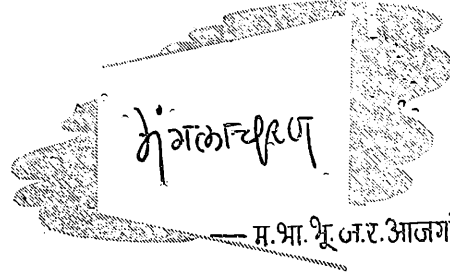 मंगलाचरण
— म.भा.भू.ज.र.आजगां